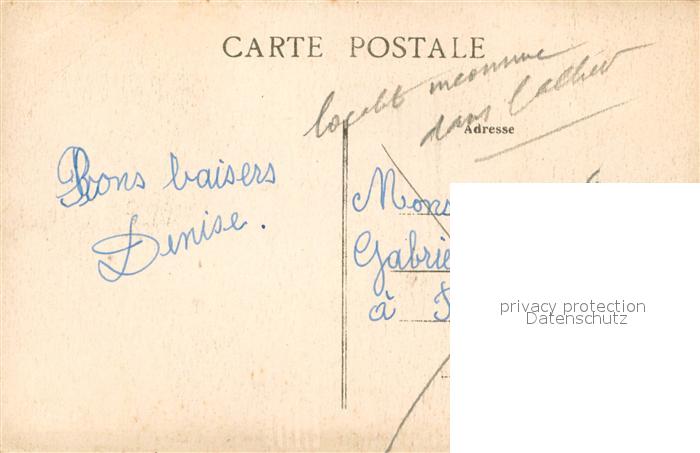 CARTE POSTALE
localité inconnue
dans l'allier
Adresse
Bons baisers
Denise.
Mons
Gabrie
à
privacy protection
Datenschutz